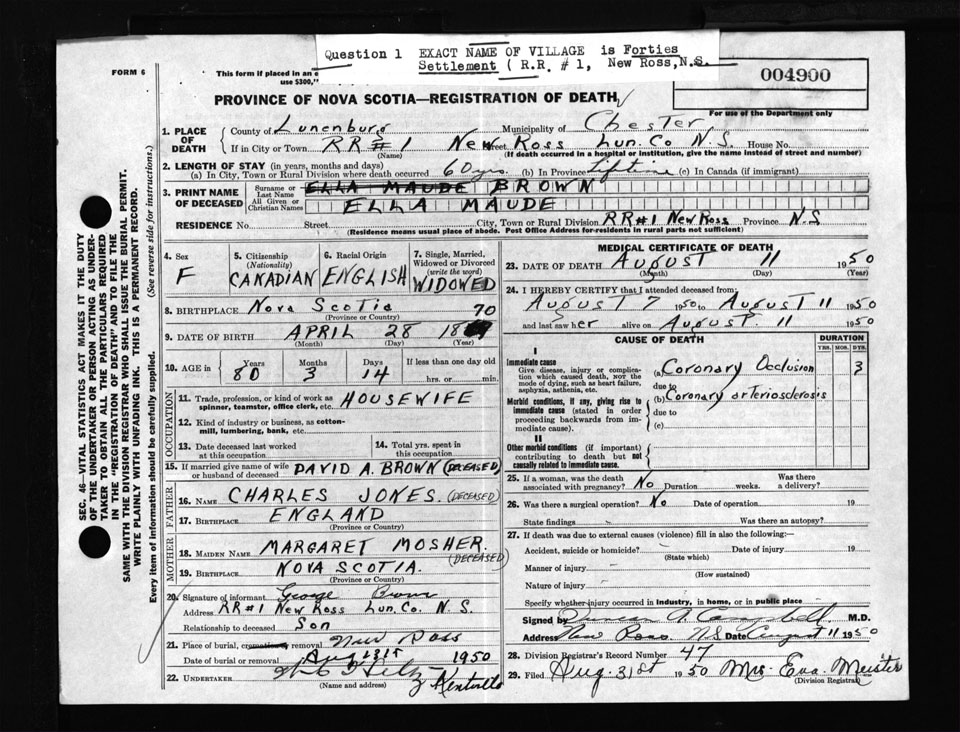 Question 1 EXACT NAME OF VILLAGE is Forties
Settlement ( R.R. # 1, New Ross, N.S.
FORM 6
This form if placed in an e
use $300,"
004900
For use of the Department only
PROVINCE OF NOVA SCOTIA—REGISTRATION OF DEATH
1. PLACE OF DEATH
County of Lunenburg Municipality of Chester
If in City or Town RR#1 New Ross Lun. Co N.S. House No.
(Name) (If death occurred in a hospital or institution, give the name instead of street and number)
2. LENGTH OF STAY (in years, months and days)
(a) In City, Town or Rural Division where death occurred 60 yrs. (b) In Province Lifetime (c) In Canada (if immigrant)
3. PRINT NAME OF DECEASED
Surname or Last Name ELLA MAUDE BROWN
All Given or Christian Names ELLA MAUDE
RESIDENCE No. Street City, Town or Rural Division RR#1 New Ross Province N.S
(Residence means usual place of abode. Post Office Address for residents in rural parts not sufficient)
4. Sex F
5. Citizenship (Nationality) CANADIAN
6. Racial Origin ENGLISH
7. Single, Married, Widowed or Divorced (write the word) WIDOWED
8. BIRTHPLACE Nova Scotia
(Province or Country)
70
9. DATE OF BIRTH APRIL 28 18
(Month) (Day) (Year)
10. AGE in Years 80 Months 3 Days 14 If less than one day old
hrs. or min.
OCCUPATION
11. Trade, profession, or kind of work as spinner, teamster, office clerk, etc. HOUSEWIFE
12. Kind of industry or business, as cotton-mill, lumbering, bank, etc.
13. Date deceased last worked at this occupation
14. Total yrs. spent in this occupation
15. If married give name of wife or husband of deceased DAVID A. BROWN (DECEASED)
FATHER
16. NAME CHARLES JONES. (DECEASED)
17. BIRTHPLACE ENGLAND
(Province or Country)
MOTHER
18. MAIDEN NAME MARGARET MOSHER. (DECEASED)
19. BIRTHPLACE NOVA SCOTIA.
(Province or Country)
20. Signature of informant George Brown
Address RR#1 New Ross Lun. Co. N.S.
Relationship to deceased Son
21. Place of burial, cremation, removal New Ross
Date of burial or removal Aug 13th 1950
22. UNDERTAKER Kentville
(Name and address)
MEDICAL CERTIFICATE OF DEATH
23. DATE OF DEATH August 11 1950
(Month) (Day) (Year)
24. I HEREBY CERTIFY that I attended deceased from:
August 7 1950 to August 11 1950
and last saw her alive on August. 11 1950
CAUSE OF DEATH
DURATION
YRS. MOS. DYS.
I
Immediate cause
Give disease, injury or complication which caused death, not the mode of dying, such as heart failure, asphyxia, asthenia, etc.
(a) Coronary Occlusion 3
due to
Morbid conditions, if any, giving rise to immediate cause (stated in order proceeding backwards from immediate cause).
(b) Coronary arteriosclerosis
due to
(c)
II
Other morbid conditions (if important) contributing to death but not causally related to immediate cause.
25. If a woman, was the death associated with pregnancy? No Duration weeks. Was there a delivery?
26. Was there a surgical operation? No Date of operation 19
State findings Was there an autopsy?
27. If death was due to external causes (violence) fill in also the following:—
Accident, suicide or homicide? Date of injury 19
(State which)
Manner of injury
(How sustained)
Nature of injury
Specify whether injury occurred in industry, in home, or in public place
Signed by Campbell M.D.
Address New Ross N.S Date August 11 1950
28. Division Registrar's Record Number 47
29. Filed Aug. 31st 1950 Mrs. Eva Meister
(Division Registrar)
SEC. 46—VITAL STATISTICS ACT MAKES IT THE DUTY
OF THE UNDERTAKER OR PERSON ACTING AS UNDER-
TAKER TO OBTAIN ALL THE PARTICULARS REQUIRED
IN THE "REGISTRATION OF DEATH" AND TO FILE THE
SAME WITH THE DIVISION REGISTRAR WHO SHALL ISSUE THE BURIAL PERMIT.
WRITE PLAINLY WITH UNFADING INK. THIS IS A PERMANENT RECORD.
Every item of information should be carefully supplied. (See reverse side for instructions.)